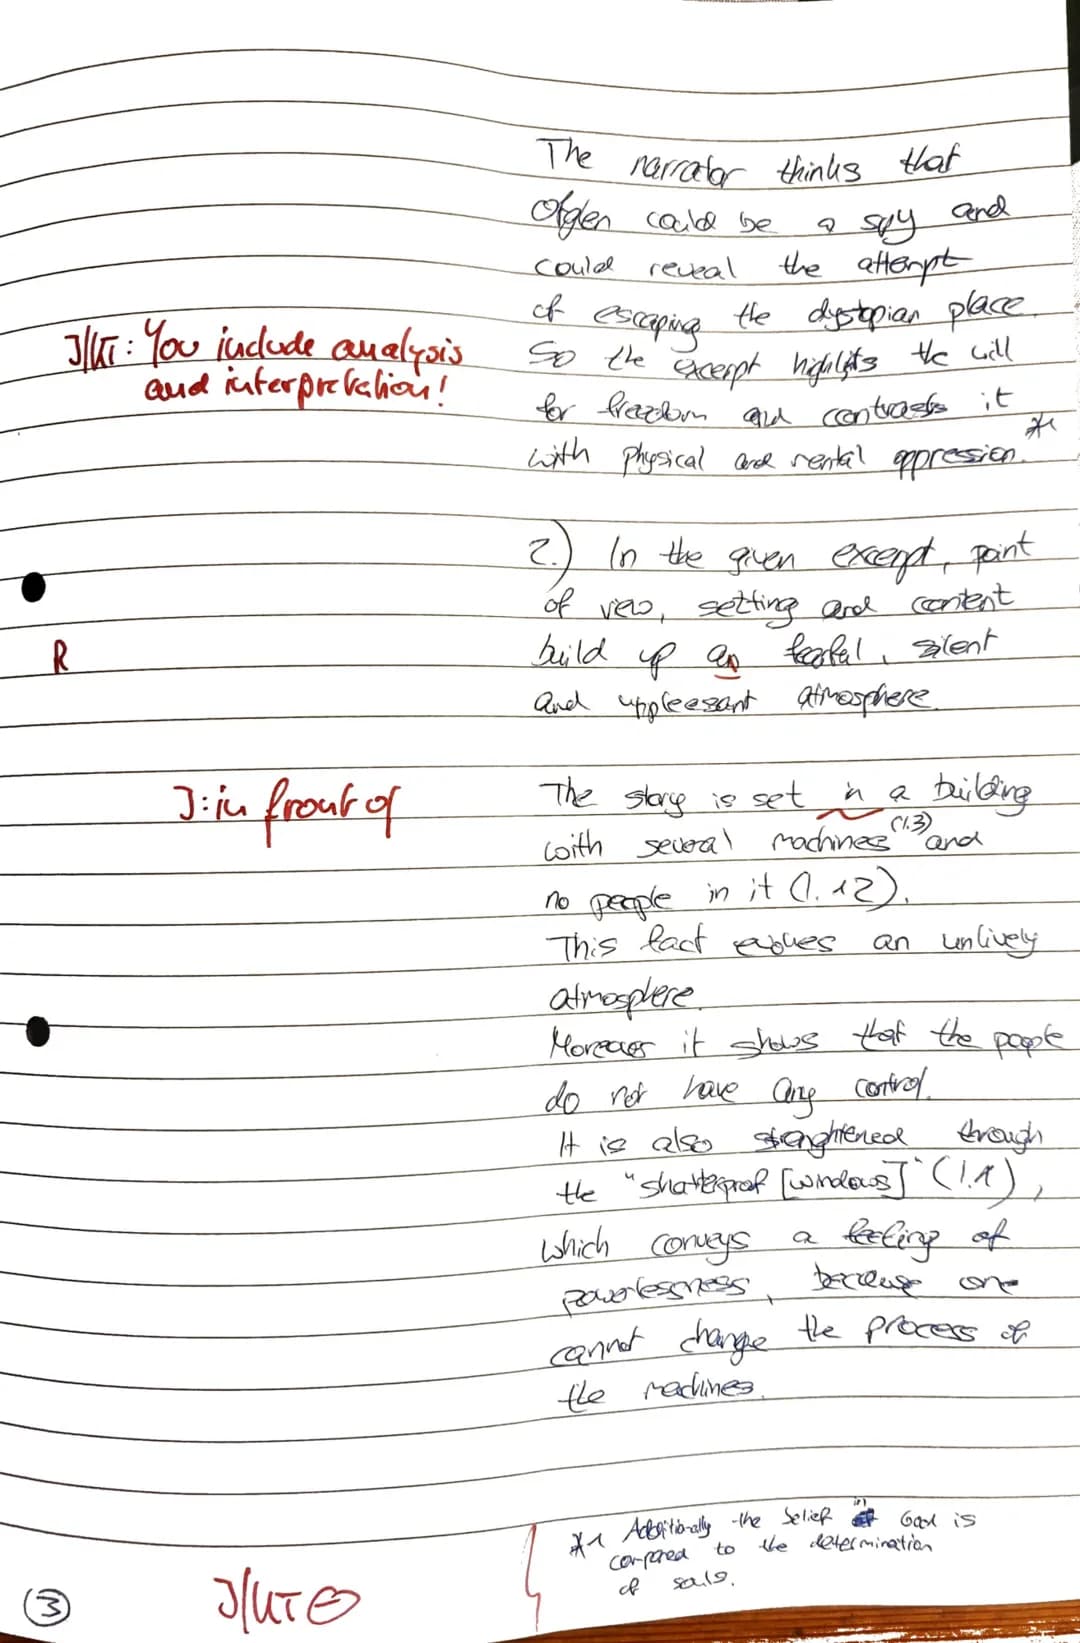 The narrator thinks that
Ofglen could be a spy and
could reveal the attempt
of escaping the dystopian place.
J/KT: You include analysis
and interpretation!
So the excerpt highlights the will
for freedom and contrasts it
with physical and mental oppression. *1
2.) In the given excerpt, point
of view, setting and content
R
build up an fearful, silent
and unpleesant atmosphere.
J: in front of
The story is set in a building
with several machines (l.3) and
no people in it (l. 12).
This fact evokes an unlively
atmosphere.
Moreover it shows that the people
do not have any control.
It is also strenghtened through
the "shatterproof [windows]" (l.1),
which conveys a feeling of
powerlessness, because one
cannot change the process of
the machines.
*1 Additionally the belief in God is
compared to the determination
of souls.
J/KT
3